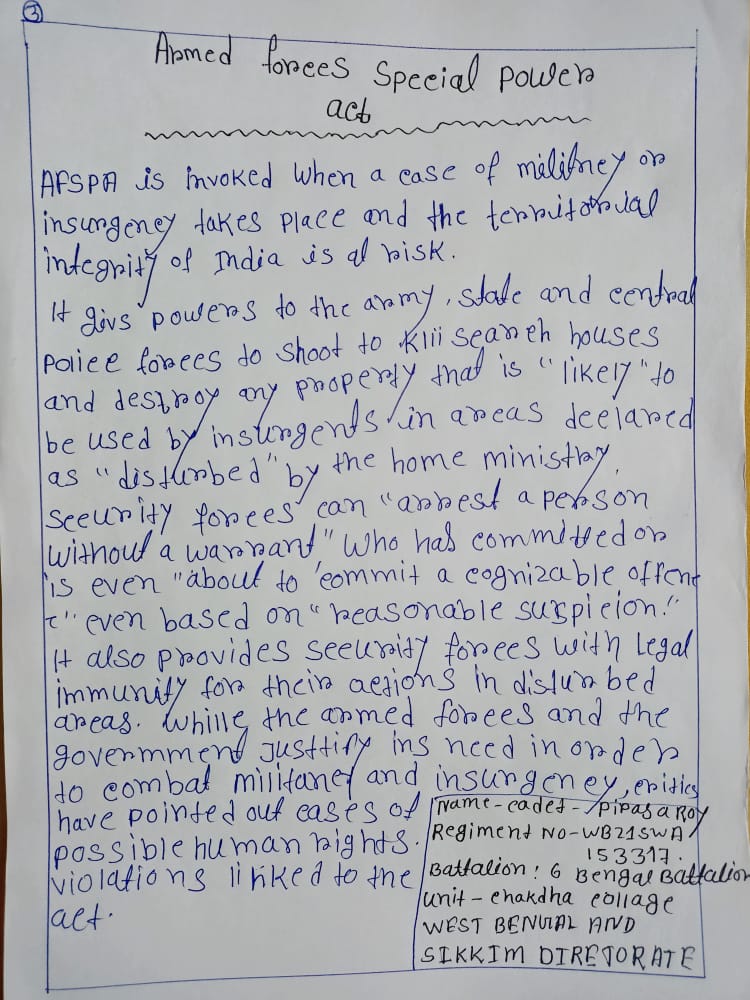 3
Armed forces Special Power
act
AFSPA is invoked when a case of militney or
insurgency takes place and the territorial
integrity of India is at risk.
It givs powers to the army, state and central
police forces to shoot to Klii search houses
and destroy any property that is "likely" to
be used by insurgents in areas declared
as "disturbed" by the home ministry.
Security forces can "arrest a person
without a warrant" who has committed or
is even "about to commit a cognizable offenc
e" even based on "reasonable suspicion."
It also provides security forces with Legal
immunity for their actions in disturbed
areas. Whille the armed forces and the
govermment Justtify ins need in order
to combat militancy and insurgency, critics
have pointed out cases of
possible human rights.
violations linked to the
act.
Name - cadet - Pipasa Roy
Regiment NO - WB21SWA
153317.
Battalion: 6 Bengal Battalion
unit - chakdha collage
WEST BENGAL AND
SIKKIM DIRETORATE